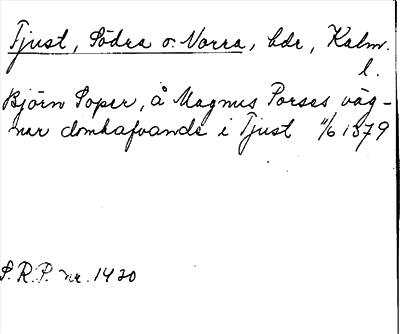 Tjust, Södra o. Norra, hdr, Kalm.
l.
Björn Soper, å Magnus Porses väg-
nar domhafvande i Tjust 11/6 1379
S.R.P. nr. 1420